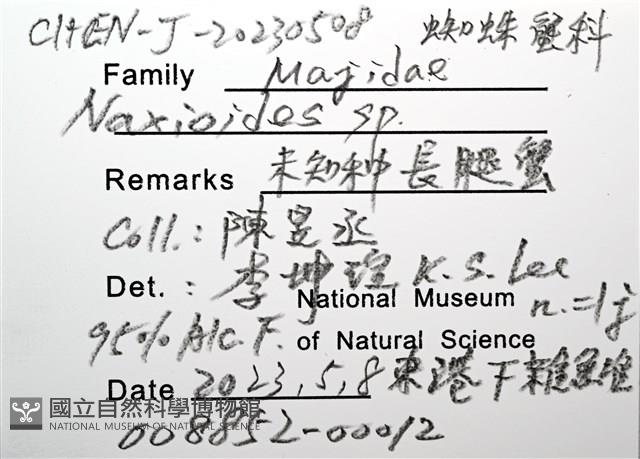 CHEN-J-20230508 蜘蛛蟹科
Family Majidae
Naxioides sp.
Remarks 未知种長腿蟹
Coll.: 陳昱丞
Det.: 李坤瑄 K.S. Lee
National Museum n.=1j
95% Alc. F. of Natural Science
Date 2023,5,8 東港下雜魚堆
國立自然科學博物館
NATIONAL MUSEUM OF NATURAL SCIENCE
008852-00012